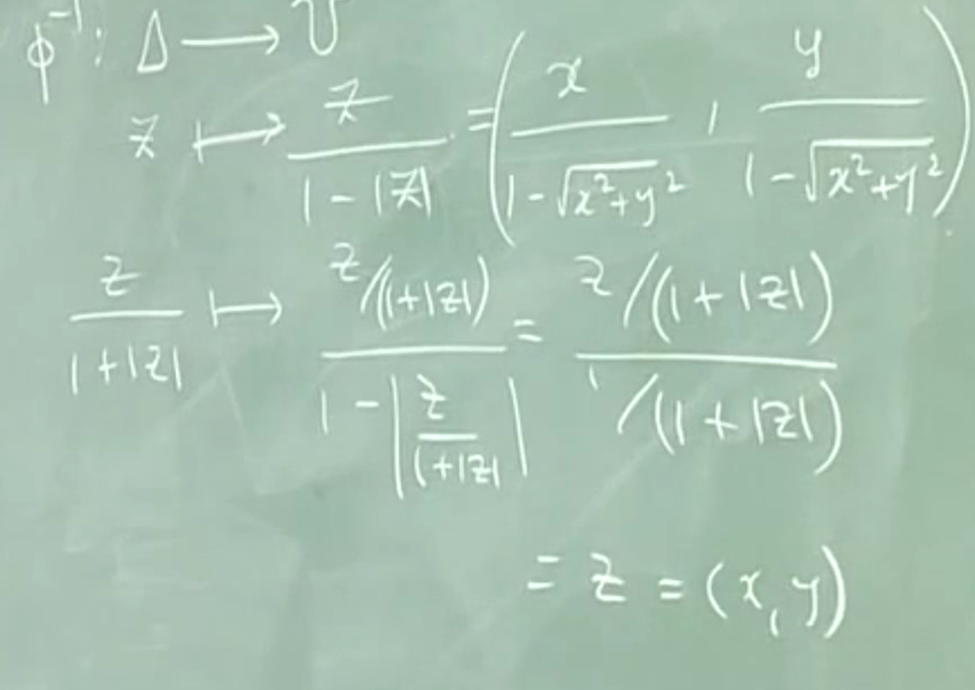 φ⁻¹ : Δ ⟶ U
z ⟼ z/(1 - |z|) = (x/(1 - √(x²+y²)), y/(1 - √(x²+y²)))
z/(1+|z|) ⟼ (z/(1+|z|))/(1 - |z/(1+|z|)|) = (z/(1+|z|))/(1/(1+|z|))
= z = (x, y)